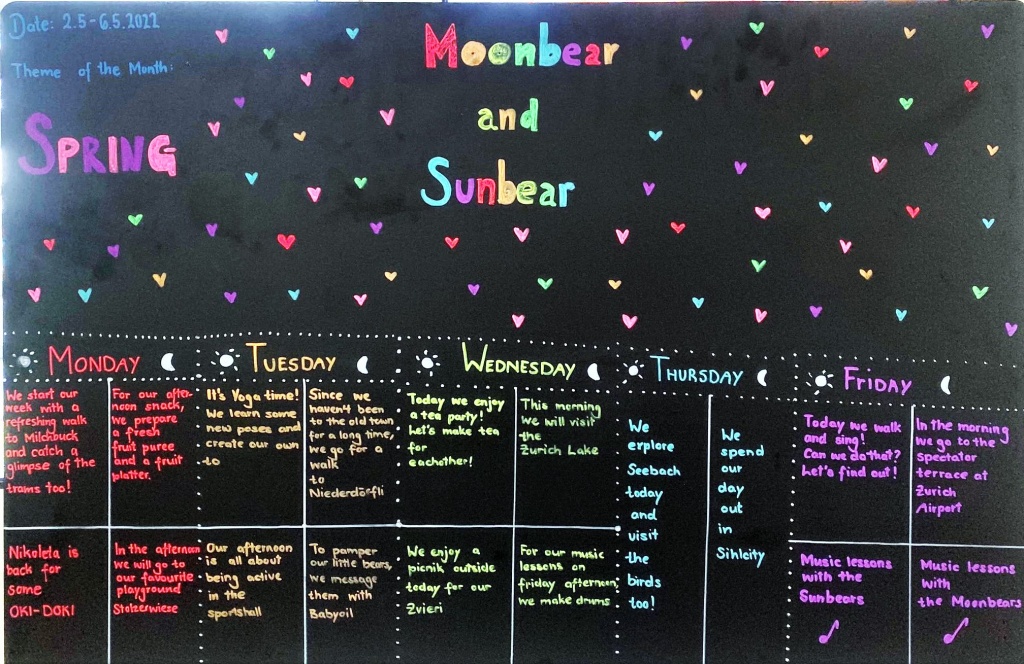 Date: 2.5-6.5.2022
Theme of the Month:
SPRING
Moonbear
and
Sunbear
MONDAY
We start our
week with a
refreshing walk
to Milchbuck
and catch a
glimpse of the
trams too!
For our after-
noon snack,
we prepare
a fresh
fruit puree
and a fruit
platter.
Nikoleta is
back for
some
OKI-DOKI
In the afternoon
we will go to
our favourite
playground
Stolzewiese
TUESDAY
It's Yoga time!
We learn some
new poses and
create our own
to
Since we
haven't been
to the old town
for a long time,
we go for a
walk
to
Niederdörfli
Our afternoon
is all about
being active
in the
sportshall
To pamper
our little bears,
we message
them with
Babyoil
WEDNESDAY
Today we enjoy
a tea party!
Let's make tea
for
eachother!
This morning
we will visit
the
Zurich Lake
We enjoy a
picnik outside
today for our
Zvieri
For our music
lessons on
friday afternoon,
we make drums
THURSDAY
We
explore
Seebach
today
and
visit
the
birds
too!
We
spend
our
day
out
in
Sihlcity
FRIDAY
Today we walk
and sing!
Can we do that?
Let's find out!
In the morning
we go to the
spectator
terrace at
Zurich
Airport
Music lessons
with the
Sunbears
Music lessons
with
the Moonbears